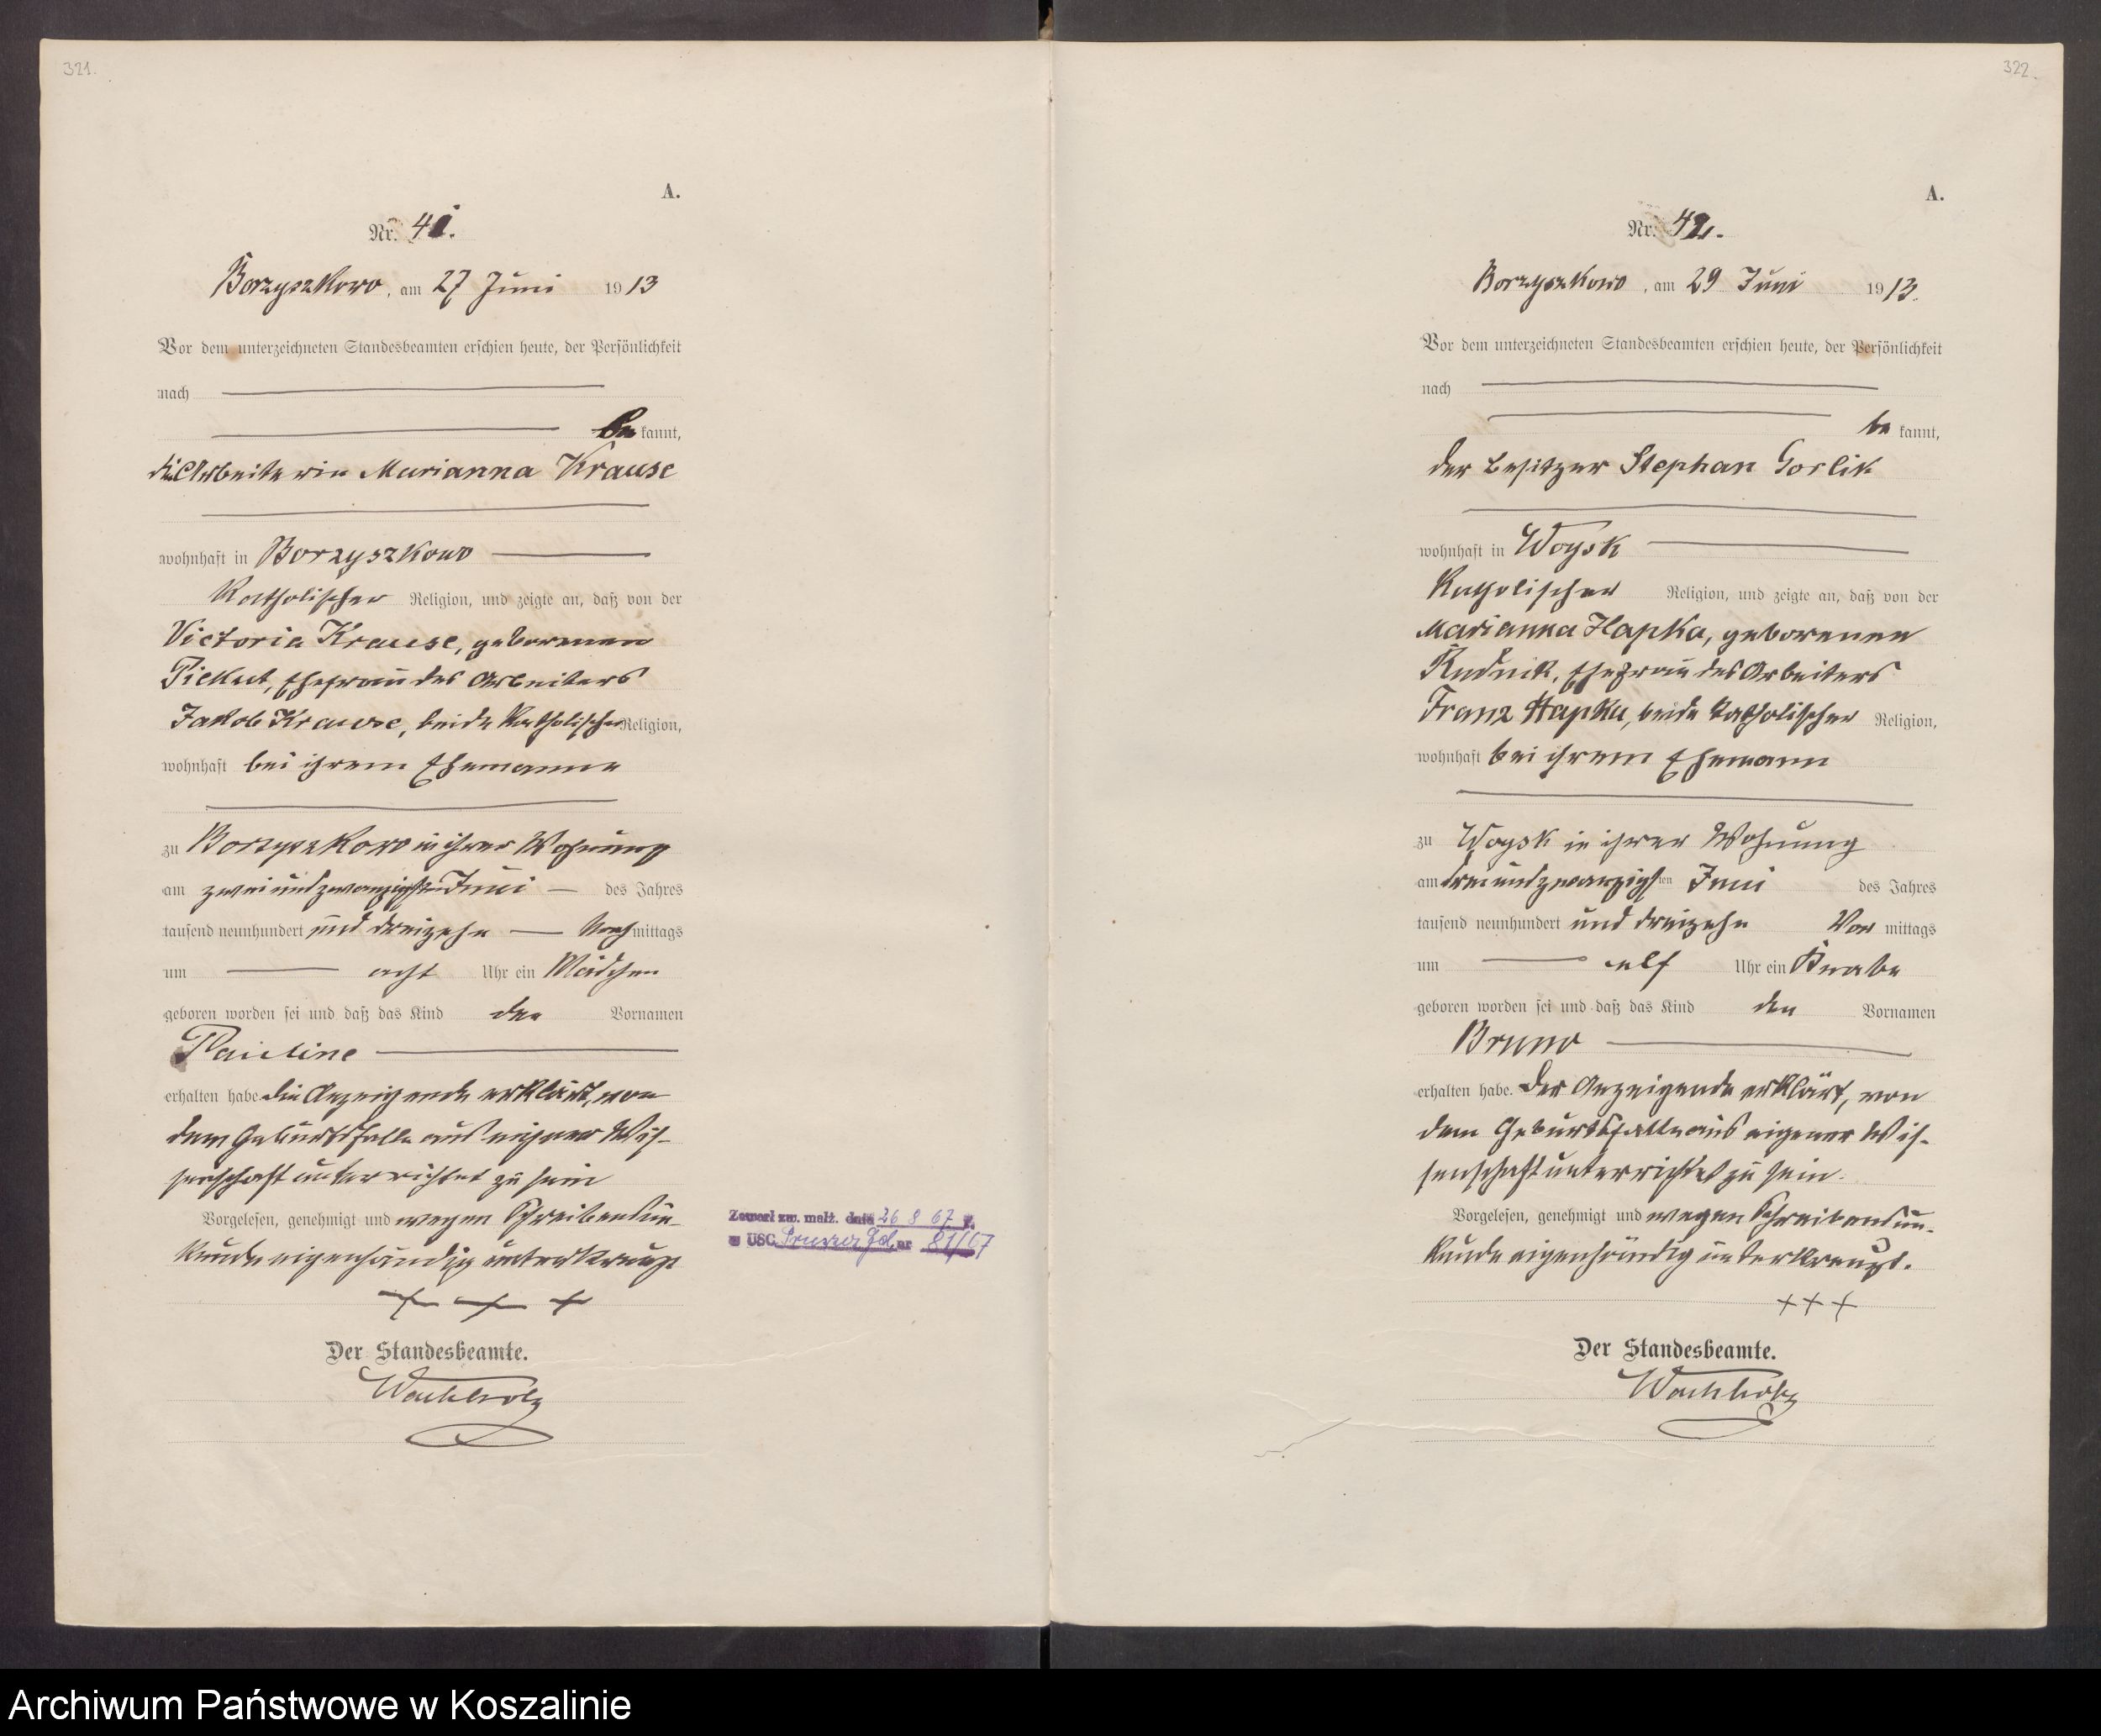 321.
A.
Nr. 41.
Borzyszkowo, am 27 Juni 1913
Vor dem unterzeichneten Standesbeamten erschien heute, der Persönlichkeit
nach
be kannt,
die Arbeiterin Marianna Krause
wohnhaft in Borzyszkowo
Katholischer Religion, und zeigte an, daß von der
Victoria Krause, geborenen
Ehefrau des Arbeiters
Jakob Krause, beide Katholischer Religion,
wohnhaft bei ihrem Ehemanne
zu Borzyszkowo in ihrer Wohnung
am zweiundzwanzigsten Juni des Jahres
tausend neunhundert und dreizehn Nachmittags
um acht Uhr ein Mädchen
geboren worden sei und daß das Kind den Vornamen
Pauline
erhalten habe. Die Anzeigende erklärt, von
dem Geburtsfalle aus eigener Wis-
senschaft unterrichtet zu sein
Vorgelesen, genehmigt und wegen Schreibensun-
kunde eigenhändig unterkreuzt
+ + +
Der Standesbeamte.
Wachholz
Zawarł zw. małż. dnia 26 8 67 r.
w USC nr 81/67
322.
A.
Nr. 42.
Borzyszkowo, am 29 Juni 1913.
Vor dem unterzeichneten Standesbeamten erschien heute, der Persönlichkeit
nach
be kannt,
der Besitzer Stephan Gorlik
wohnhaft in Woysk
Katholischer Religion, und zeigte an, daß von der
Marianna Hapka, geborenen
Rudnik, Ehefrau des Arbeiters
Franz Hapka, beide katholischer Religion,
wohnhaft bei ihrem Ehemann
zu Woysk in ihrer Wohnung
am dreiundzwanzigsten Juni des Jahres
tausend neunhundert und dreizehn Vor mittags
um elf Uhr ein Knabe
geboren worden sei und daß das Kind den Vornamen
Bruno
erhalten habe. Der Anzeigende erklärt, von
dem Geburtsfalle aus eigener Wis-
senschaft unterrichtet zu sein.
Vorgelesen, genehmigt und wegen Schreibensun-
kunde eigenhändig unterkreuzt.
+++
Der Standesbeamte.
Wachholz
Archiwum Państwowe w Koszalinie